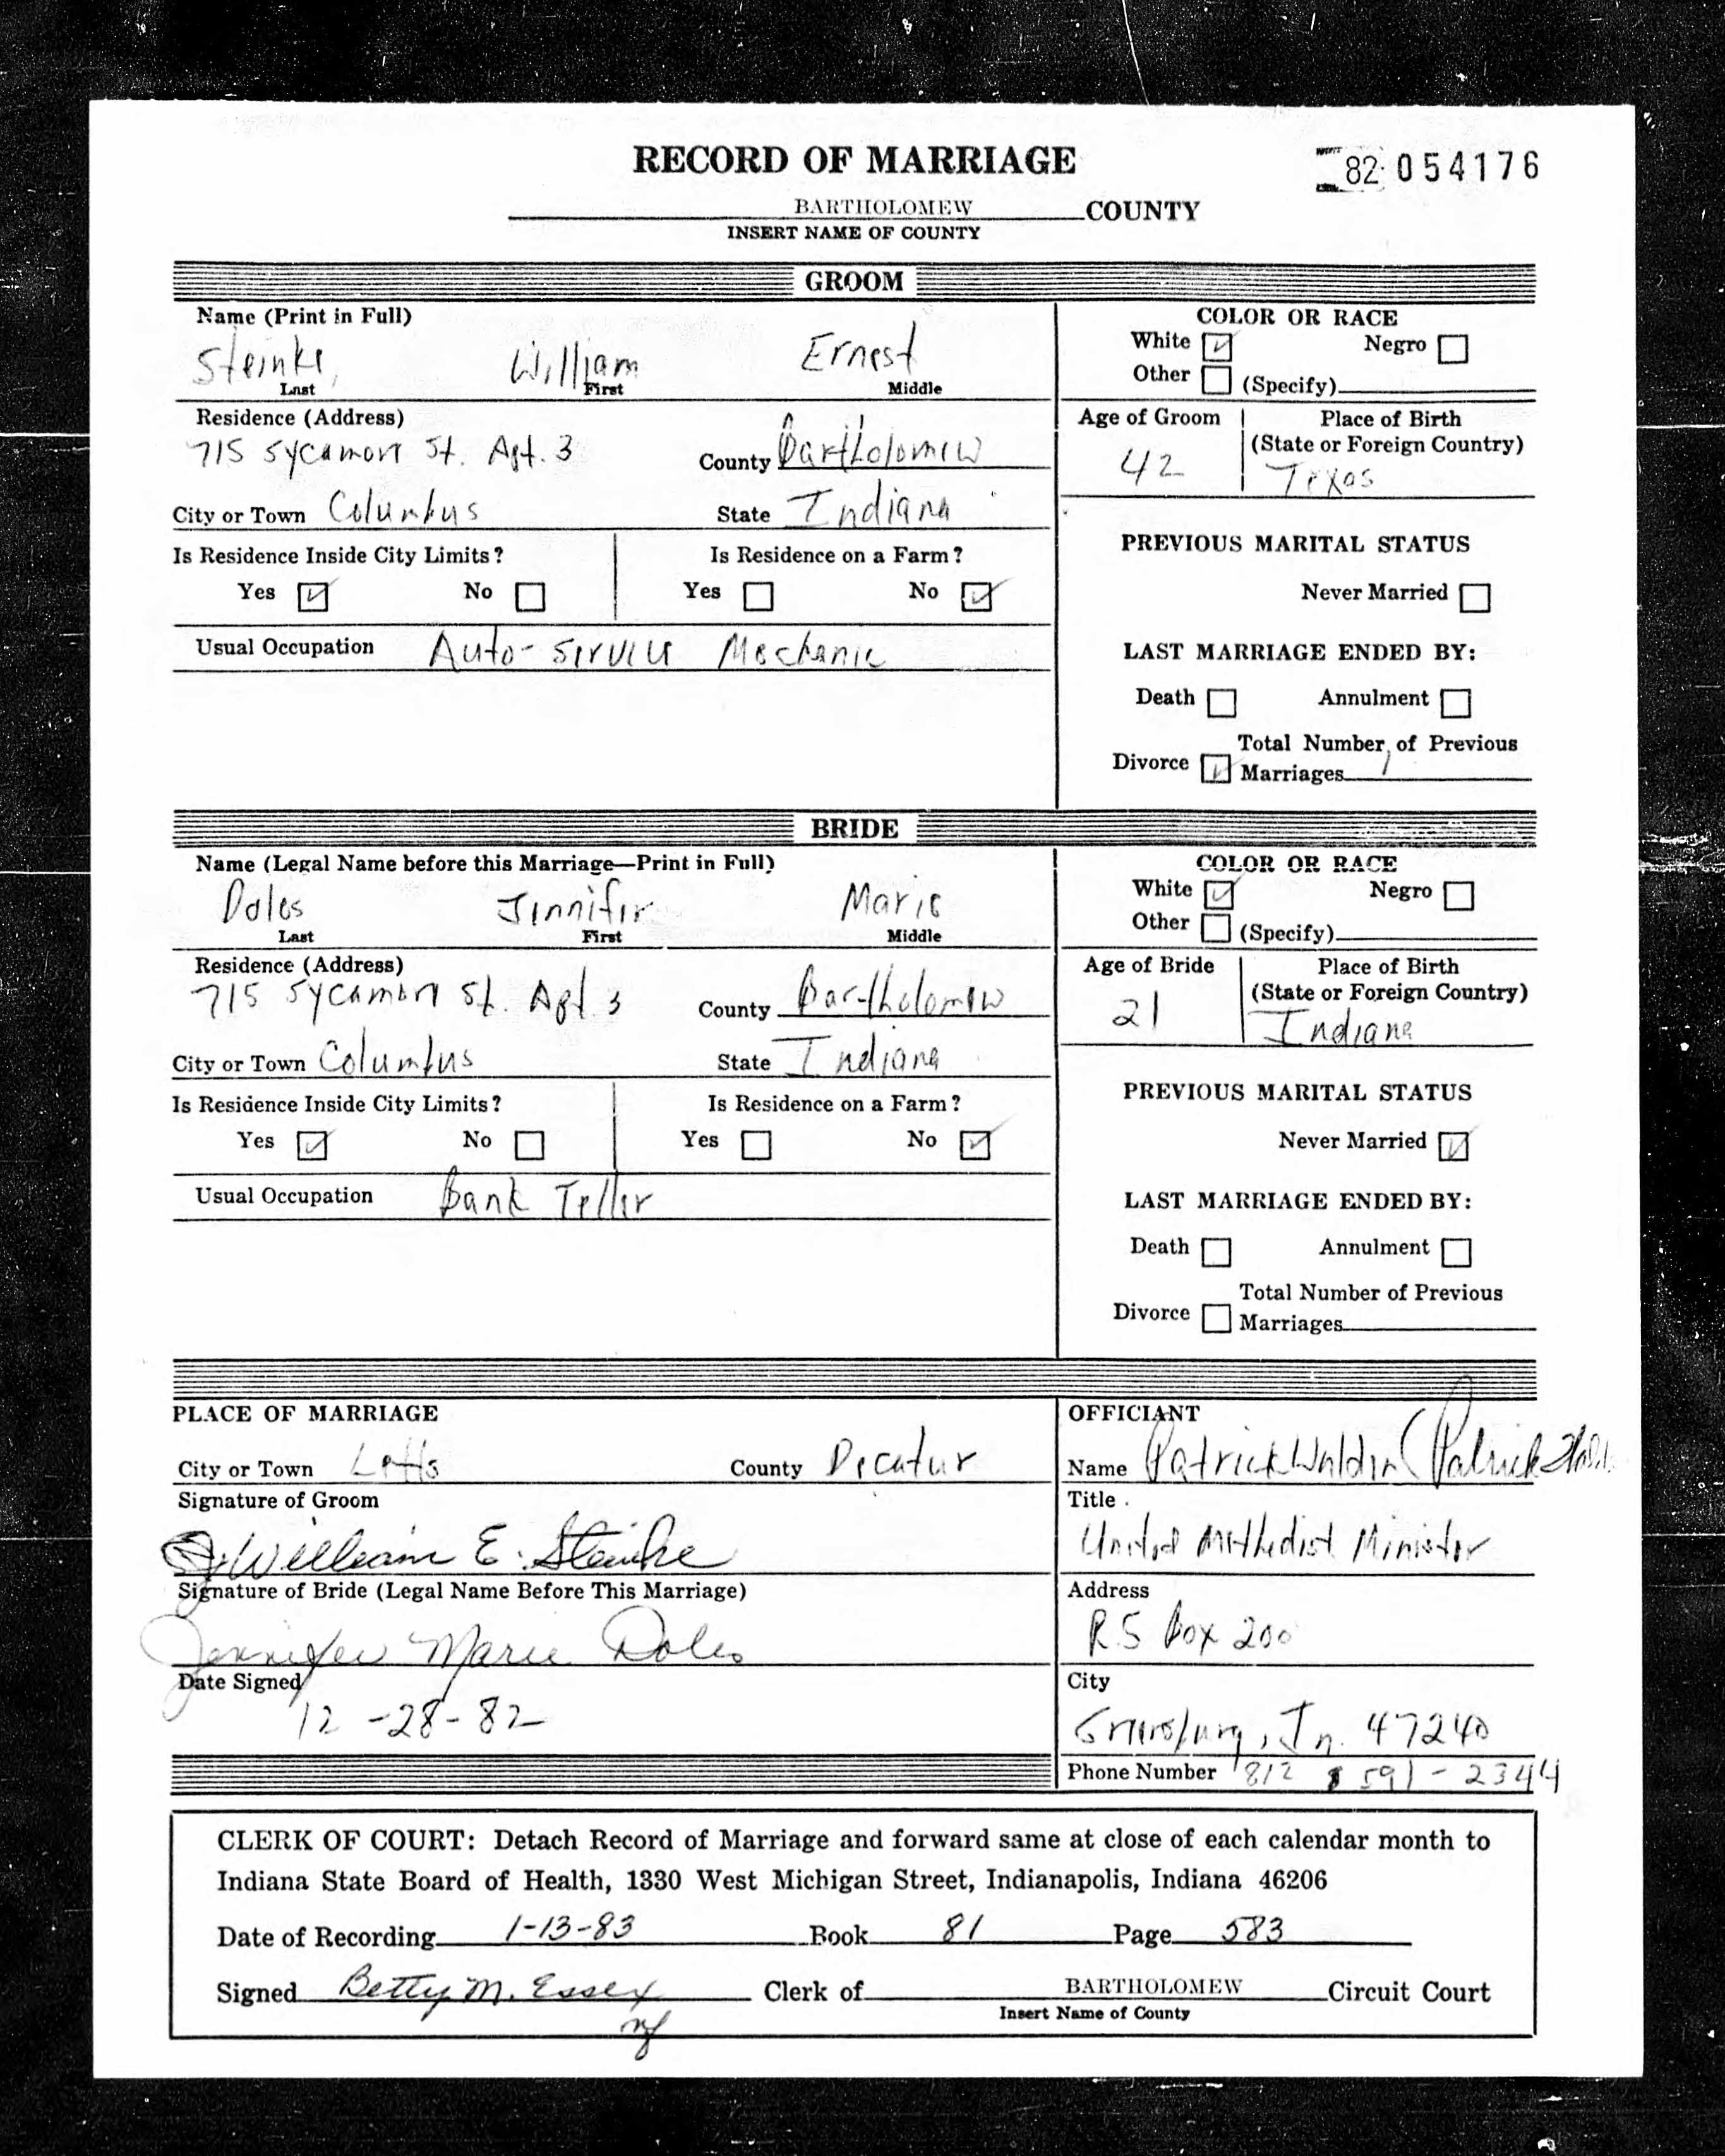 RECORD OF MARRIAGE
82 054176
BARTHOLOMEW COUNTY
INSERT NAME OF COUNTY
GROOM
Name (Print in Full)
Steinke, William Ernest
Last First Middle
COLOR OR RACE
White ☑ Negro ☐
Other ☐ (Specify)
Residence (Address)
715 Sycamore St. Apt. 3 County Bartholomew
City or Town Columbus State Indiana
Age of Groom
42
Place of Birth
(State or Foreign Country)
Texas
Is Residence Inside City Limits? Is Residence on a Farm?
Yes ☑ No ☐ Yes ☐ No ☑
Usual Occupation Auto-Service Mechanic
PREVIOUS MARITAL STATUS
Never Married ☐
LAST MARRIAGE ENDED BY:
Death ☐ Annulment ☐
Divorce ☑ Total Number of Previous
Marriages 1
BRIDE
Name (Legal Name before this Marriage—Print in Full)
Doles Jennifer Marie
Last First Middle
COLOR OR RACE
White ☑ Negro ☐
Other ☐ (Specify)
Residence (Address)
715 Sycamore St. Apt. 3 County Bartholomew
City or Town Columbus State Indiana
Age of Bride
21
Place of Birth
(State or Foreign Country)
Indiana
Is Residence Inside City Limits? Is Residence on a Farm?
Yes ☑ No ☐ Yes ☐ No ☑
Usual Occupation Bank Teller
PREVIOUS MARITAL STATUS
Never Married ☑
LAST MARRIAGE ENDED BY:
Death ☐ Annulment ☐
Divorce ☐ Total Number of Previous
Marriages
PLACE OF MARRIAGE
City or Town Letts County Decatur
Signature of Groom
William E. Steinke
Signature of Bride (Legal Name Before This Marriage)
Jennifer Marie Doles
Date Signed
12-28-82
OFFICIANT
Name Patrick Waldin (Patrick
Title
United Methodist Minister
Address
R.5 Box 200
City
Greensburg, In. 47240
Phone Number 812 591-2344
CLERK OF COURT: Detach Record of Marriage and forward same at close of each calendar month to
Indiana State Board of Health, 1330 West Michigan Street, Indianapolis, Indiana 46206
Date of Recording 1-13-83 Book 81 Page 583
Signed Betty M. Essex Clerk of BARTHOLOMEW Circuit Court
Insert Name of County